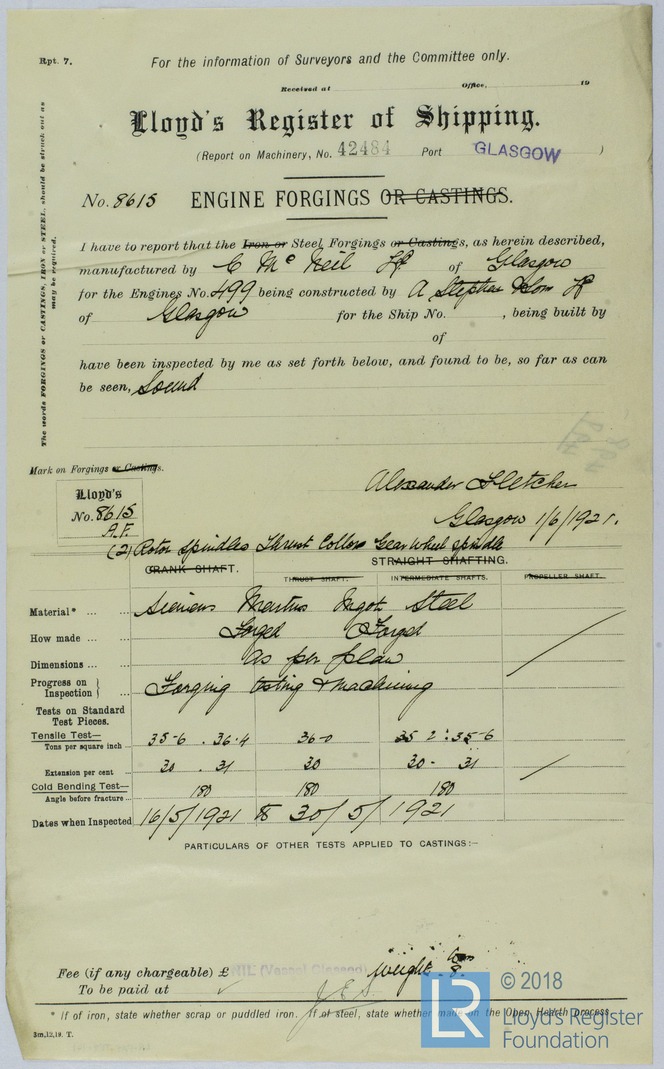 Rpt. 7.
For the information of Surveyors and the Committee only.
Received at Office, 19
Lloyd's Register of Shipping.
(Report on Machinery, No. 42484 Port GLASGOW )
No. 8615 ENGINE FORGINGS OR CASTINGS.
The words FORGINGS or CASTINGS, IRON or STEEL, should be struck out as may be required.
I have to report that the Iron or Steel Forgings or Castings, as herein described,
manufactured by C McNeil Ld of Glasgow
for the Engines No. 499 being constructed by A Stephen & Sons Ld
of Glasgow for the Ship No. , being built by
of
have been inspected by me as set forth below, and found to be, so far as can
be seen, Sound
Mark on Forgings or Castings.
Alexander Fletcher
Lloyd's
No. 8615
A.F.
Glasgow 1/6/1921.
(2) Rotor Spindles Thrust Collar Gear Wheel Spindle
CRANK SHAFT. STRAIGHT SHAFTING.
THRUST SHAFT. INTERMEDIATE SHAFTS. PROPELLER SHAFT.
Material* ... ... Siemens Martins Ingot Steel
How made ... ... Forged Forged
Dimensions ... ... As per plan
Progress on Inspection } ... Forging testing & machining
Tests on Standard
Test Pieces.
Tensile Test—
Tons per square inch ... 35-6 . 36.4 36-0 35 2 : 35-6
Extension per cent 30 . 31 30 30 - 31
Cold Bending Test—
Angle before fracture... 180 180 180
Dates when Inspected 16/5/1921 & 30/5/1921
PARTICULARS OF OTHER TESTS APPLIED TO CASTINGS:—
Fee (if any chargeable) £
Weight 8.
To be paid at
J.E.S.
* If of iron, state whether scrap or puddled iron. If of steel, state whether made on the Open Hearth process.
3m,12,19. T.
LR
© 2018
Lloyd's Register
Foundation